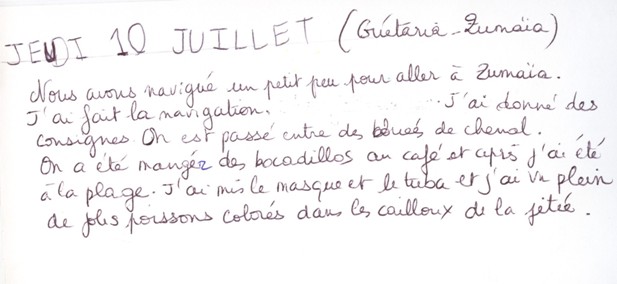 JEUDI 10 JUILLET (Guétaria - Zumaïa)
Nous avons navigué un petit peu pour aller à Zumaïa.
J'ai fait la navigation. J'ai donné des
consignes On est passé entre des bouées de chenal.
On a été manger des bocadillos au café et après j'ai été
à la plage. J'ai mis le masque et le tuba et j'ai vu plein
de jolis poissons colorés dans les cailloux de la jetée.